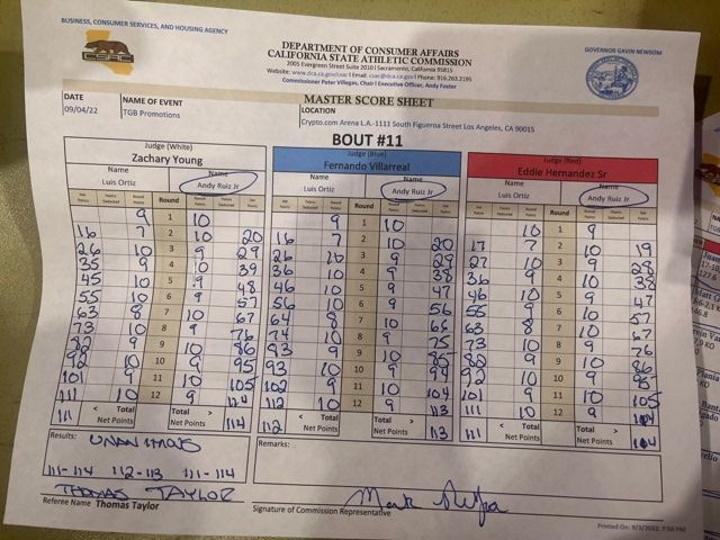 BUSINESS, CONSUMER SERVICES, AND HOUSING AGENCY
GOVERNOR GAVIN NEWSOM
CSAC
DEPARTMENT OF CONSUMER AFFAIRS
CALIFORNIA STATE ATHLETIC COMMISSION
2005 Evergreen Street Suite 2010 | Sacramento, California 95815
Website: www.dca.ca.gov/csac | Email: csac@dca.ca.gov | Phone: 916.263.2195
Commissioner Peter Villegas, Chair | Executive Officer, Andy Foster
MASTER SCORE SHEET
DATE NAME OF EVENT LOCATION
09/04/22 TGB Promotions Crypto.com Arena L.A.-1111 South Figueroa Street Los Angeles, CA 90015
BOUT #11
Judge (White) Judge (Blue) Judge (Red)
Zachary Young Fernando Villarreal Eddie Hernandez Sr
Name Name Name Name Name Name
Luis Ortiz Andy Ruiz Jr Luis Ortiz Andy Ruiz Jr Luis Ortiz Andy Ruiz Jr
Round Round Round
9 1 10 9 1 10 10 1 9
16 7 2 10 20 16 7 2 10 20 17 7 2 10 19
26 10 3 9 29 26 10 3 9 29 27 10 3 9 28
35 9 4 10 39 36 10 4 9 38 36 9 4 10 38
45 10 5 9 48 46 10 5 9 47 46 10 5 9 47
55 10 6 9 57 56 10 6 9 56 55 9 6 10 57
63 8 7 10 67 64 8 7 10 66 63 8 7 10 67
73 10 8 9 76 74 10 8 9 75 73 10 8 9 76
82 9 9 10 86 83 9 9 10 85 82 9 9 10 86
10 10 9 95 93 10 10 9 92 10 10 9 95
101 9 11 10 105 102 9 11 10 104 101 9 11 10 105
111 10 12 9 112 10 12 9 113 111 10 12 9
111 < Total Net Points Total > Net Points 114 112 < Total Net Points Total > Net Points 113 111 < Total Net Points Total > Net Points
Results: UNANIMOUS
111-114 112-113 111-114
Remarks:
THOMAS TAYLOR
Referee Name Thomas Taylor
Signature of Commission Representative
Printed On: 9/3/2022,